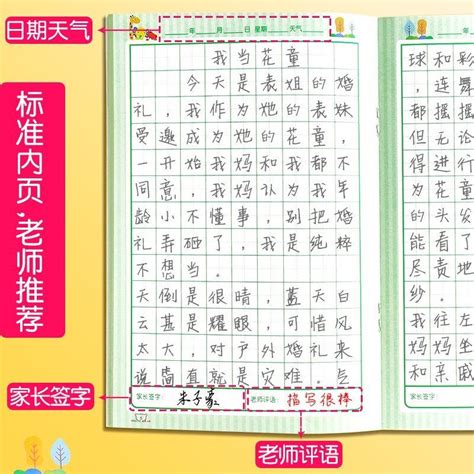 日期天气
年 月 日 星期 天气
标准内页，老师推荐
我当花童
今天是表姐的婚
礼，我作为她的表妹
受邀成为她的花童，
一开始我妈和我都不
同意，我妈认为我年
龄小不懂事，别把婚
礼弄砸了，我是纯粹
不想当。
天倒是很晴，蓝天白
云甚是耀眼，可惜风
太大，对户外婚礼来
说简直就是灾难。气
家长签字
家长签字：
老师评语：描写很棒
老师评语
球和彩
，连舞
都摇摇
但无论
得进行
为花童
的头发
能看了
尽责地
纱。
我往左
妈妈坐
和亲戚